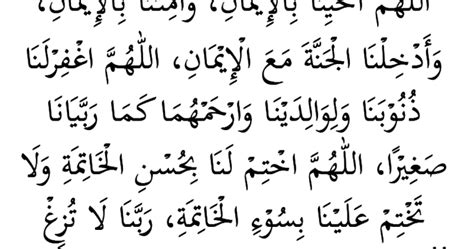 اَللّٰهُمَّ اَحْيِنَا بِالْإِيْمَانِ، وَأَمِتْنَا بِالْإِيْمَانِ،
وَأَدْخِلْنَا الْجَنَّةَ مَعَ الْإِيْمَانِ، اَللّٰهُمَّ اغْفِرْ لَنَا
ذُنُوْبَنَا وَلِوَالِدَيْنَا وَارْحَمْهُمَا كَمَا رَبَّيَانَا
صَغِيْرًا، اَللّٰهُمَّ اخْتِمْ لَنَا بِحُسْنِ الْخَاتِمَةِ وَلَا
تَخْتِمْ عَلَيْنَا بِسُوْءِ الْخَاتِمَةِ، رَبَّنَا لَا تُزِغْ